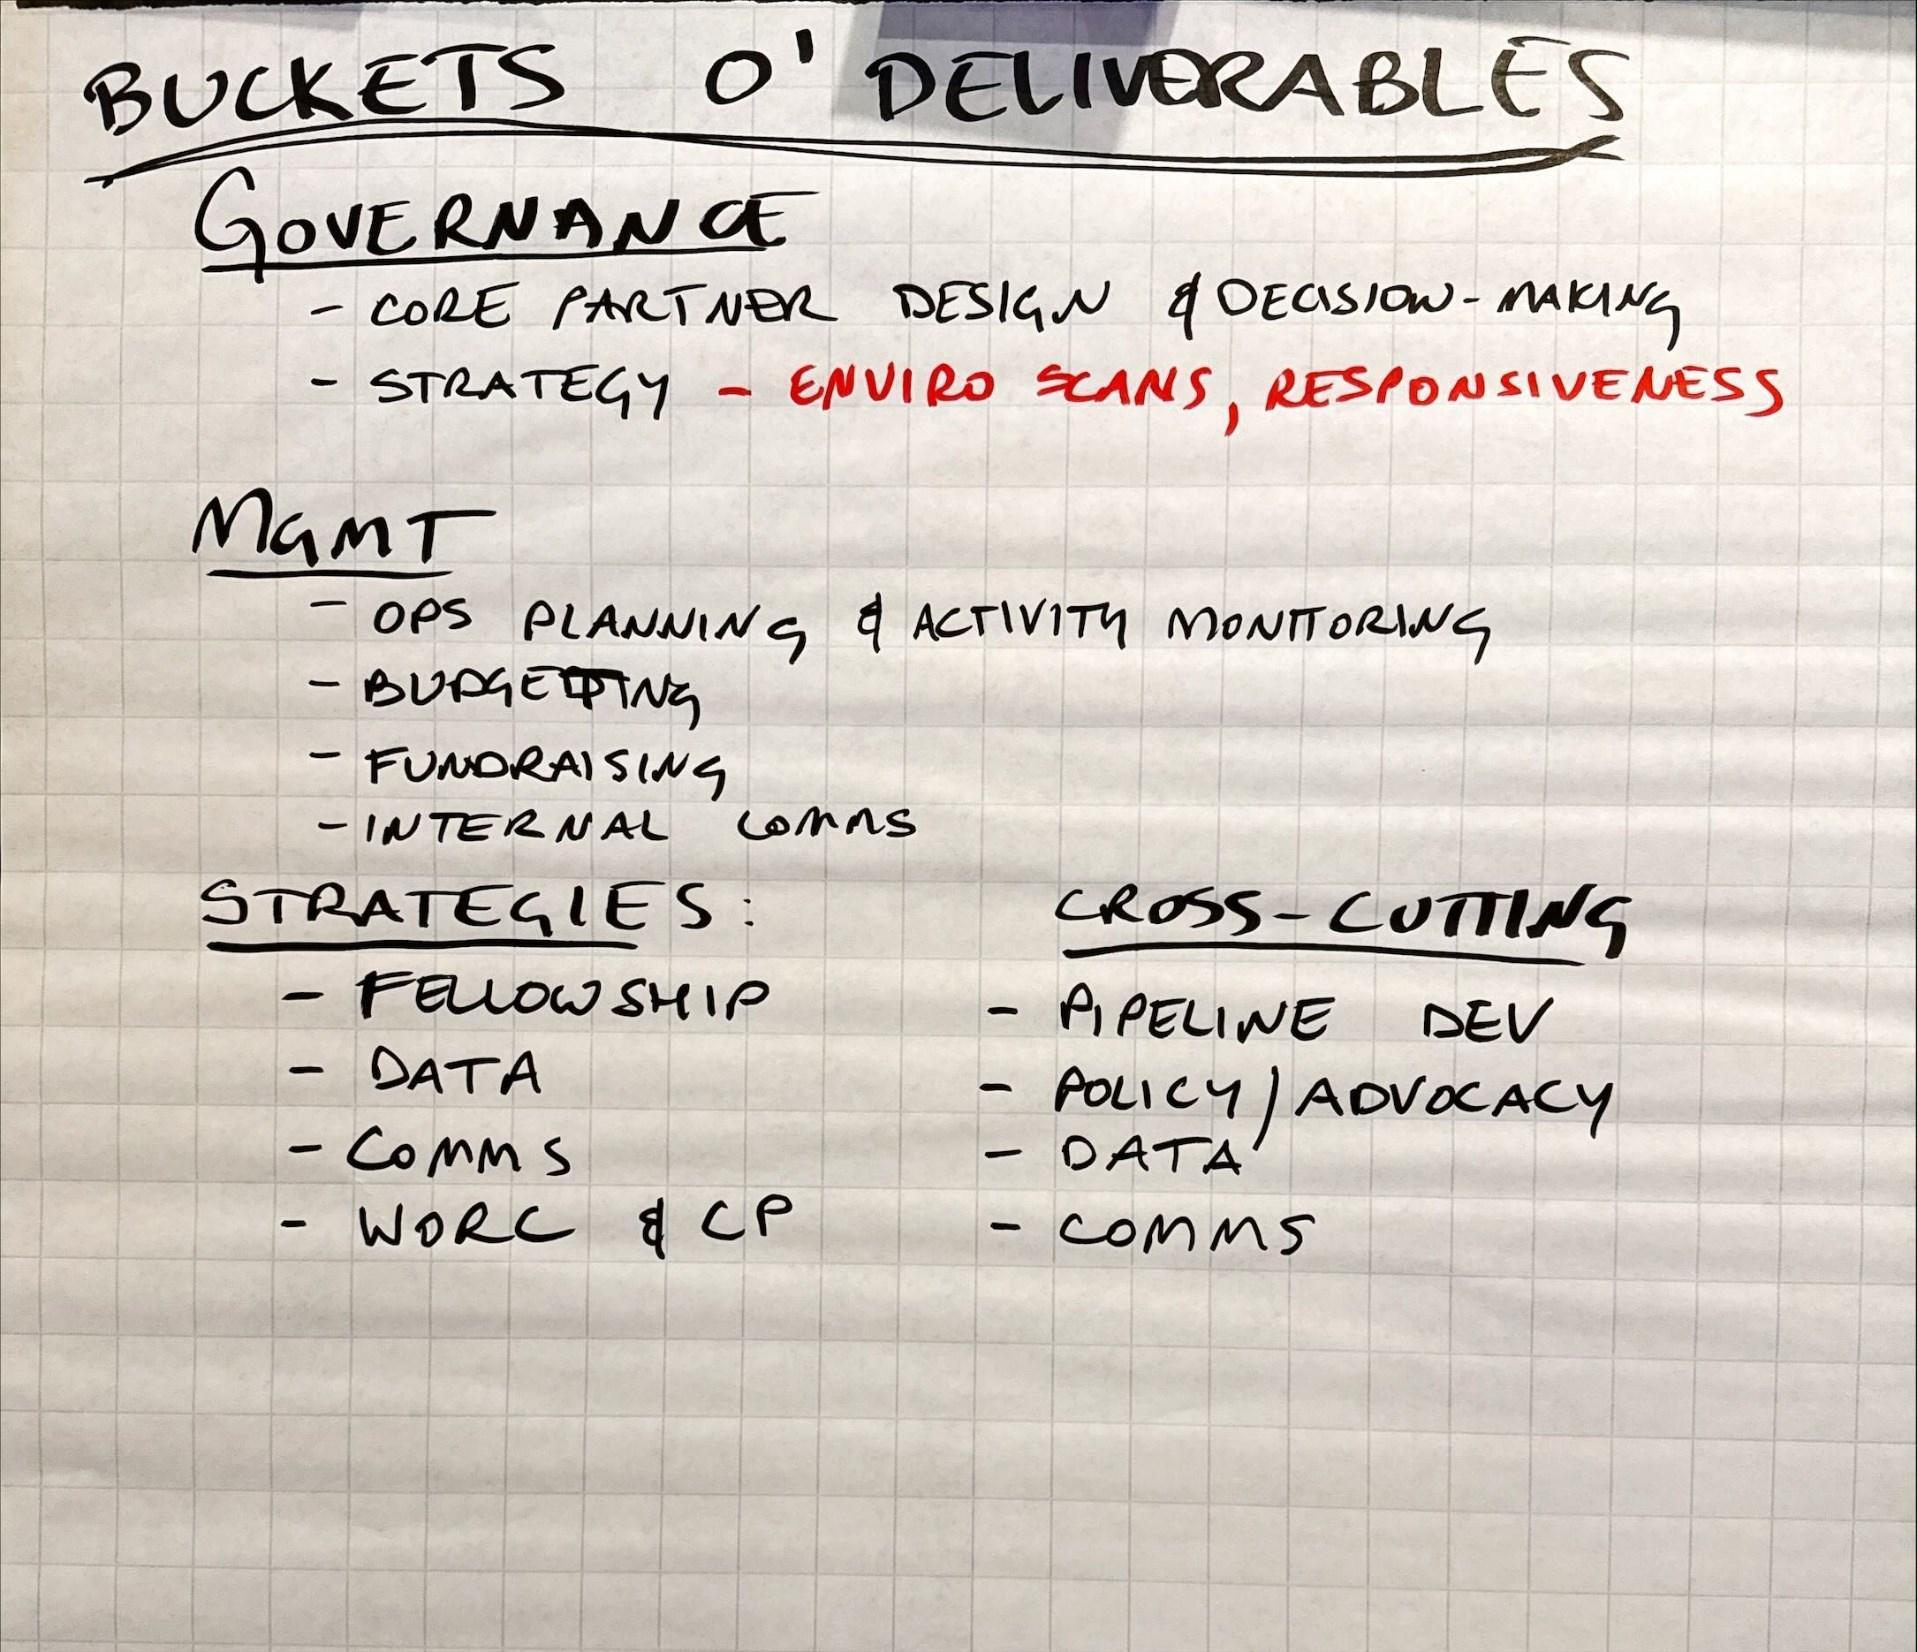 BUCKETS O' DELIVERABLES
GOVERNANCE
- CORE PARTNER DESIGN & DECISION-MAKING
- STRATEGY - ENVIRO SCANS, RESPONSIVENESS
MGMT
- OPS PLANNING & ACTIVITY MONITORING
- BUDGETTING
- FUNDRAISING
- INTERNAL COMMS
STRATEGIES:
- FELLOWSHIP
- DATA
- COMMS
- WORC & CP
CROSS-CUTTING
- PIPELINE DEV
- POLICY/ADVOCACY
- DATA
- COMMS